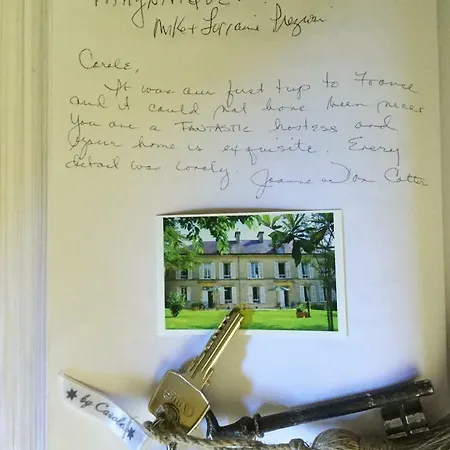 MAGNIFIQUE!
Mike & Lorraine
Carole,
It was our first trip to France
and it could not have been nicer
You are a FANTASTIC hostess and
your home is exquisite. Every
detail was lovely. Joanne & Don Cotter
by Carole